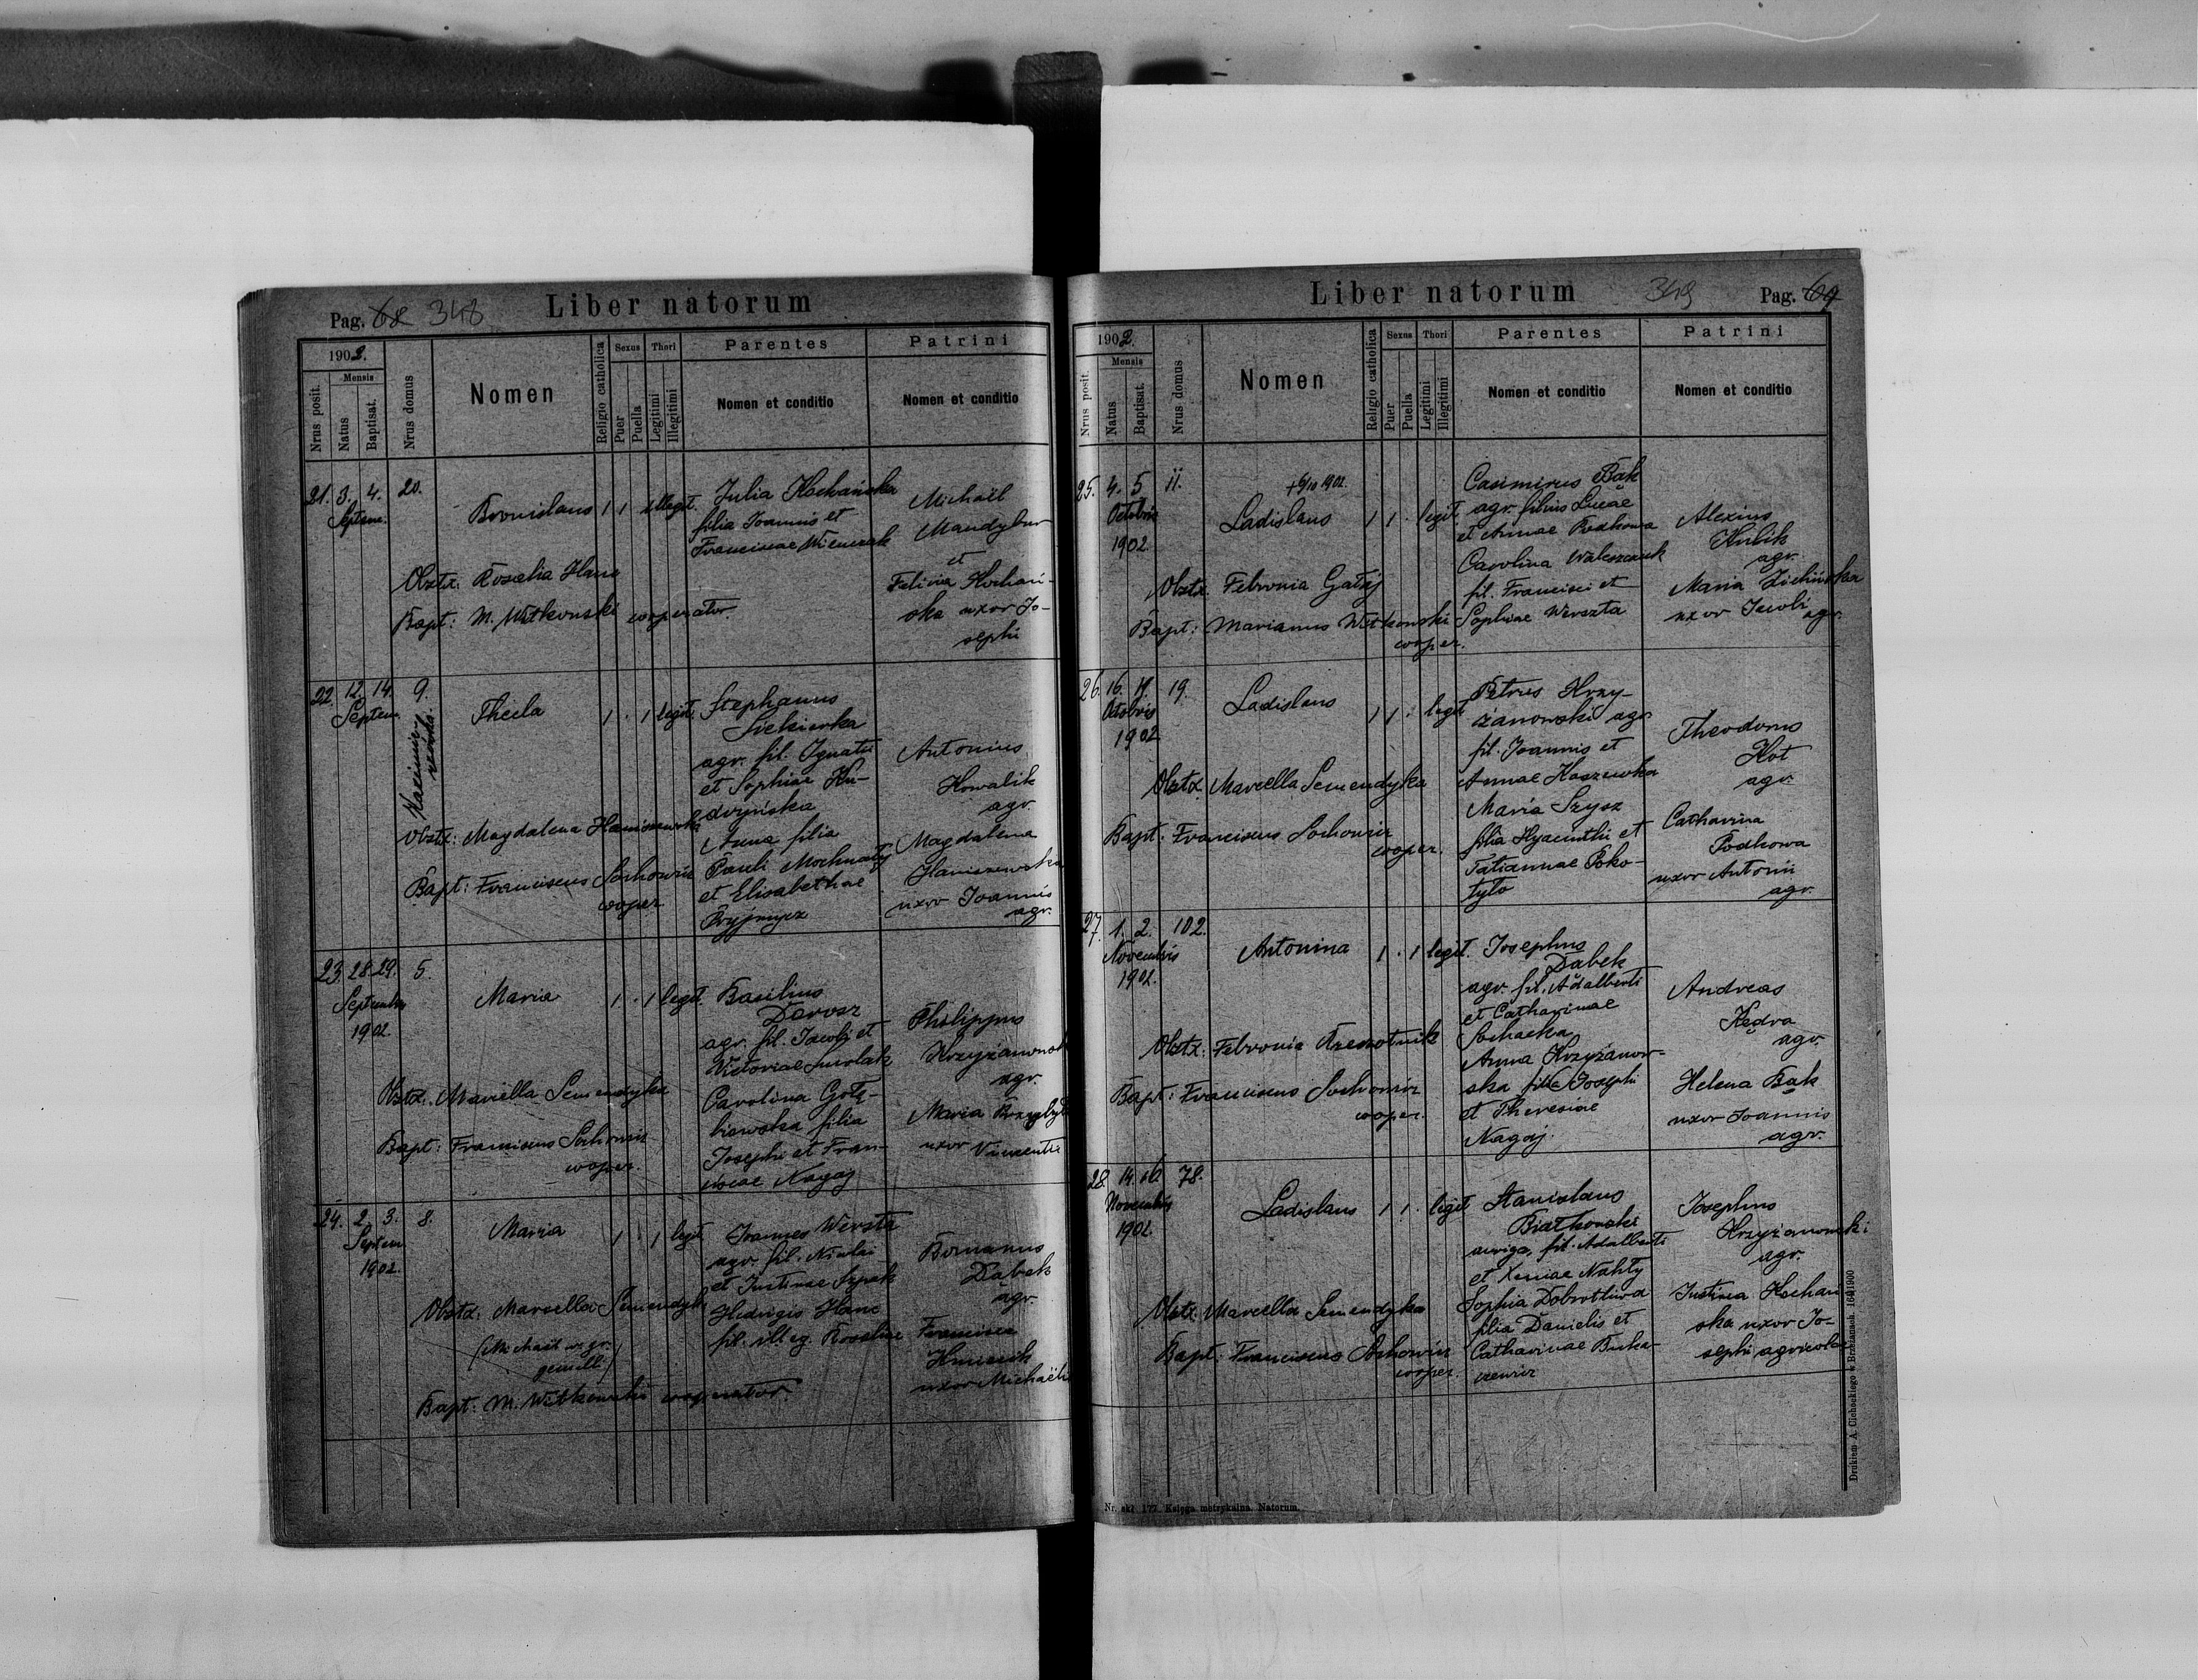 Pag. 68 348
Liber natorum
1902.
Mensis
Nrus posit.
Natus
Baptisat.
Nrus domus
Nomen
Religio catholica
Sexus
Puer
Puella
Thori
Legitimi
Illegitimi
Parentes
Nomen et conditio
Patrini
Nomen et conditio
21. 3. 4. 20.
Septem.
Bronislaus 1 1 illegit.
Julia Kochańska
filia Joannis et
Franciscae Wienczak
Michaël
Mandybur
et
Felicia Kochań-
ska uxor Jo-
sephi
Obstx. Rosalia Hanc
Bapt: M. Witkowski cooperator.
22. 12. 14. 9.
Septem.
Thecla 1 . 1 legit.
Stephanus
Siekierka
agr. fil. Ignatii
et Sophiae Ku-
dryńska
Anna filia
Pauli Mochnatij
et Elisabethae
Antonius
Kowalik
agr.
Magdalena
Haniszewska
uxor Joannis
agr.
Obstx: Magdalena Haniszewska
Bapt: Franciscus Sochowicz
cooper.
23. 28. 29. 5.
Septembr.
1902.
Maria 1 . 1 legit.
Basilius
Darosz
agr. fil. Jacobi et
Victoriae Surolak
Carolina Gołę-
biowska filia
Josephi et Fran-
ciscae Nagaj
Philippus
Krzyżanowski
agr.
Maria
uxor Vincentii
Obstx: Marcella Semendyka
Bapt: Franciscus Sochowicz
cooper.
24. 2. 3. 8.
Septem.
1902.
Maria 1 . 1 legit.
Joannes Wersta
agr. fil. Nicolai
et Justinae Szpak
Hedvigis Hanc
fil. illeg. Rosaliae
Romanus
Dąbek
agr.
Francisca
uxor Michaëli
Obstx: Marcella Semendyk
gemelli)
Bapt: M. Witkowski cooperator.
Liber natorum
349 Pag. 69
1902.
Mensis
Nrus posit.
Natus
Baptisat.
Nrus domus
Nomen
Religio catholica
Sexus
Puer
Puella
Thori
Legitimi
Illegitimi
Parentes
Nomen et conditio
Patrini
Nomen et conditio
25. 4. 5 11.
Octobris
1902.
Ladislaus 1 1 . legit
Casimirus Bąk
agr. filius Lucae
et Annae Podkowa
Carolina Waleszczuk
fil. Francisci et
Sophiae Werszta
Alexius
Kulik
agr.
Maria Zielińska
uxor Jacobi
agr.
Obstx. Febronia Gałaj
Bapt: Marianus Witkowski
cooper.
26. 16. 19. 19.
Octobris
1902
Ladislaus 1 1 . legit
Petrus Krzy-
żanowski agr.
fil. Joannis et
Annae Kaszewka
Maria Szysz
filia Hyacinthi et
Tatiannae Poko-
tyło
Theodorus
Kot
agr.
Catharina
Podkowa
uxor Antonii
agr.
Obstx. Marcella Semendyka
Bapt: Franciscus Sochowicz
cooper.
27. 1. 2. 102.
Novembris
1902.
Antonina 1 . 1 legit.
Josephus
Dąbek
agr. fil. Adalberti
et Catharinae
Sochacka
Anna Krzyżanow-
ska filia Josephi
et Theresiae
Nagaj.
Andreas
Kędra
agr.
Helena Bąk
uxor Joannis
agr.
Obstx: Febronia Rzeszotnik
Bapt: Franciscus Sochowicz
cooper.
28. 14. 16. 78.
Novembris
1902.
Ladislaus 1 1 . legit
Stanislaus
Białkowski
auriga, fil. Adalberti
et Xeniae Nahły
Sophia Dobrotliwa
filia Danielis et
Catharinae Buka-
czewicz
Josephus
Krzyżanowski
agr.
Justina Kochań
ska uxor Jo-
sephi agricolae
Obstx: Marcella Semendyka
Bapt: Franciscus Sochowicz
cooper.
Nr. skł. 177. Księga metrykalna. Natorum.
Drukiem A. Cichockiego w Brzeżanach. 164/1900